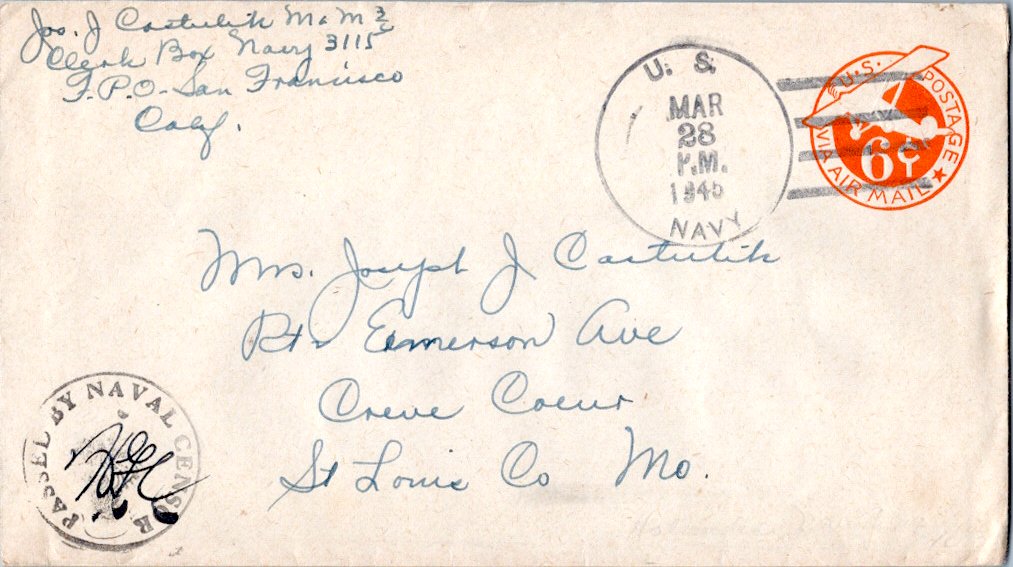 Jos. J Castulik M.M 3/c
Clerk Box Navy 3115
F.P.O. San Francisco
Calif.
U. S.
MAR
28
P.M.
1945
NAVY
U.S. POSTAGE
6¢
VIA AIR MAIL
Mrs. Joseph J Castulik
Rt. Emerson Ave
Creve Coeur
St Louis Co Mo.
PASSED BY NAVAL CENSOR